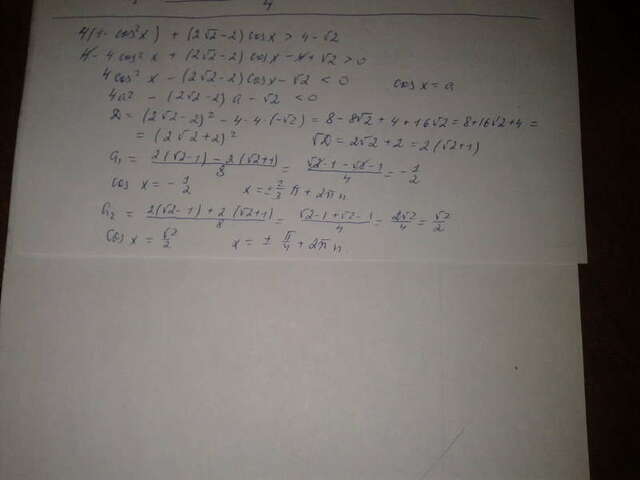 4(1-cos²x) + (2√2-2)cosx > 4-√2
4 - 4cos²x + (2√2-2)cosx - 4 + √2 > 0
4cos²x - (2√2-2)cosx - √2 < 0 cosx = a
4a² - (2√2-2)a - √2 < 0
D = (2√2-2)² - 4·4·(-√2) = 8-8√2+4+16√2 = 8+16√2+4 =
= (2√2+2)² √D = 2√2+2 = 2(√2+1)
a₁ = (2(√2-1) - 2(√2+1))/8 = (√2-1-√2-1)/4 = -1/2
cos x = -1/2 x = ±2/3 π + 2πn
a₂ = (2(√2-1) + 2(√2+1))/8 = (√2-1+√2-1)/4 = 2√2/4 = √2/2
cos x = √2/2 x = ± π/4 + 2πn